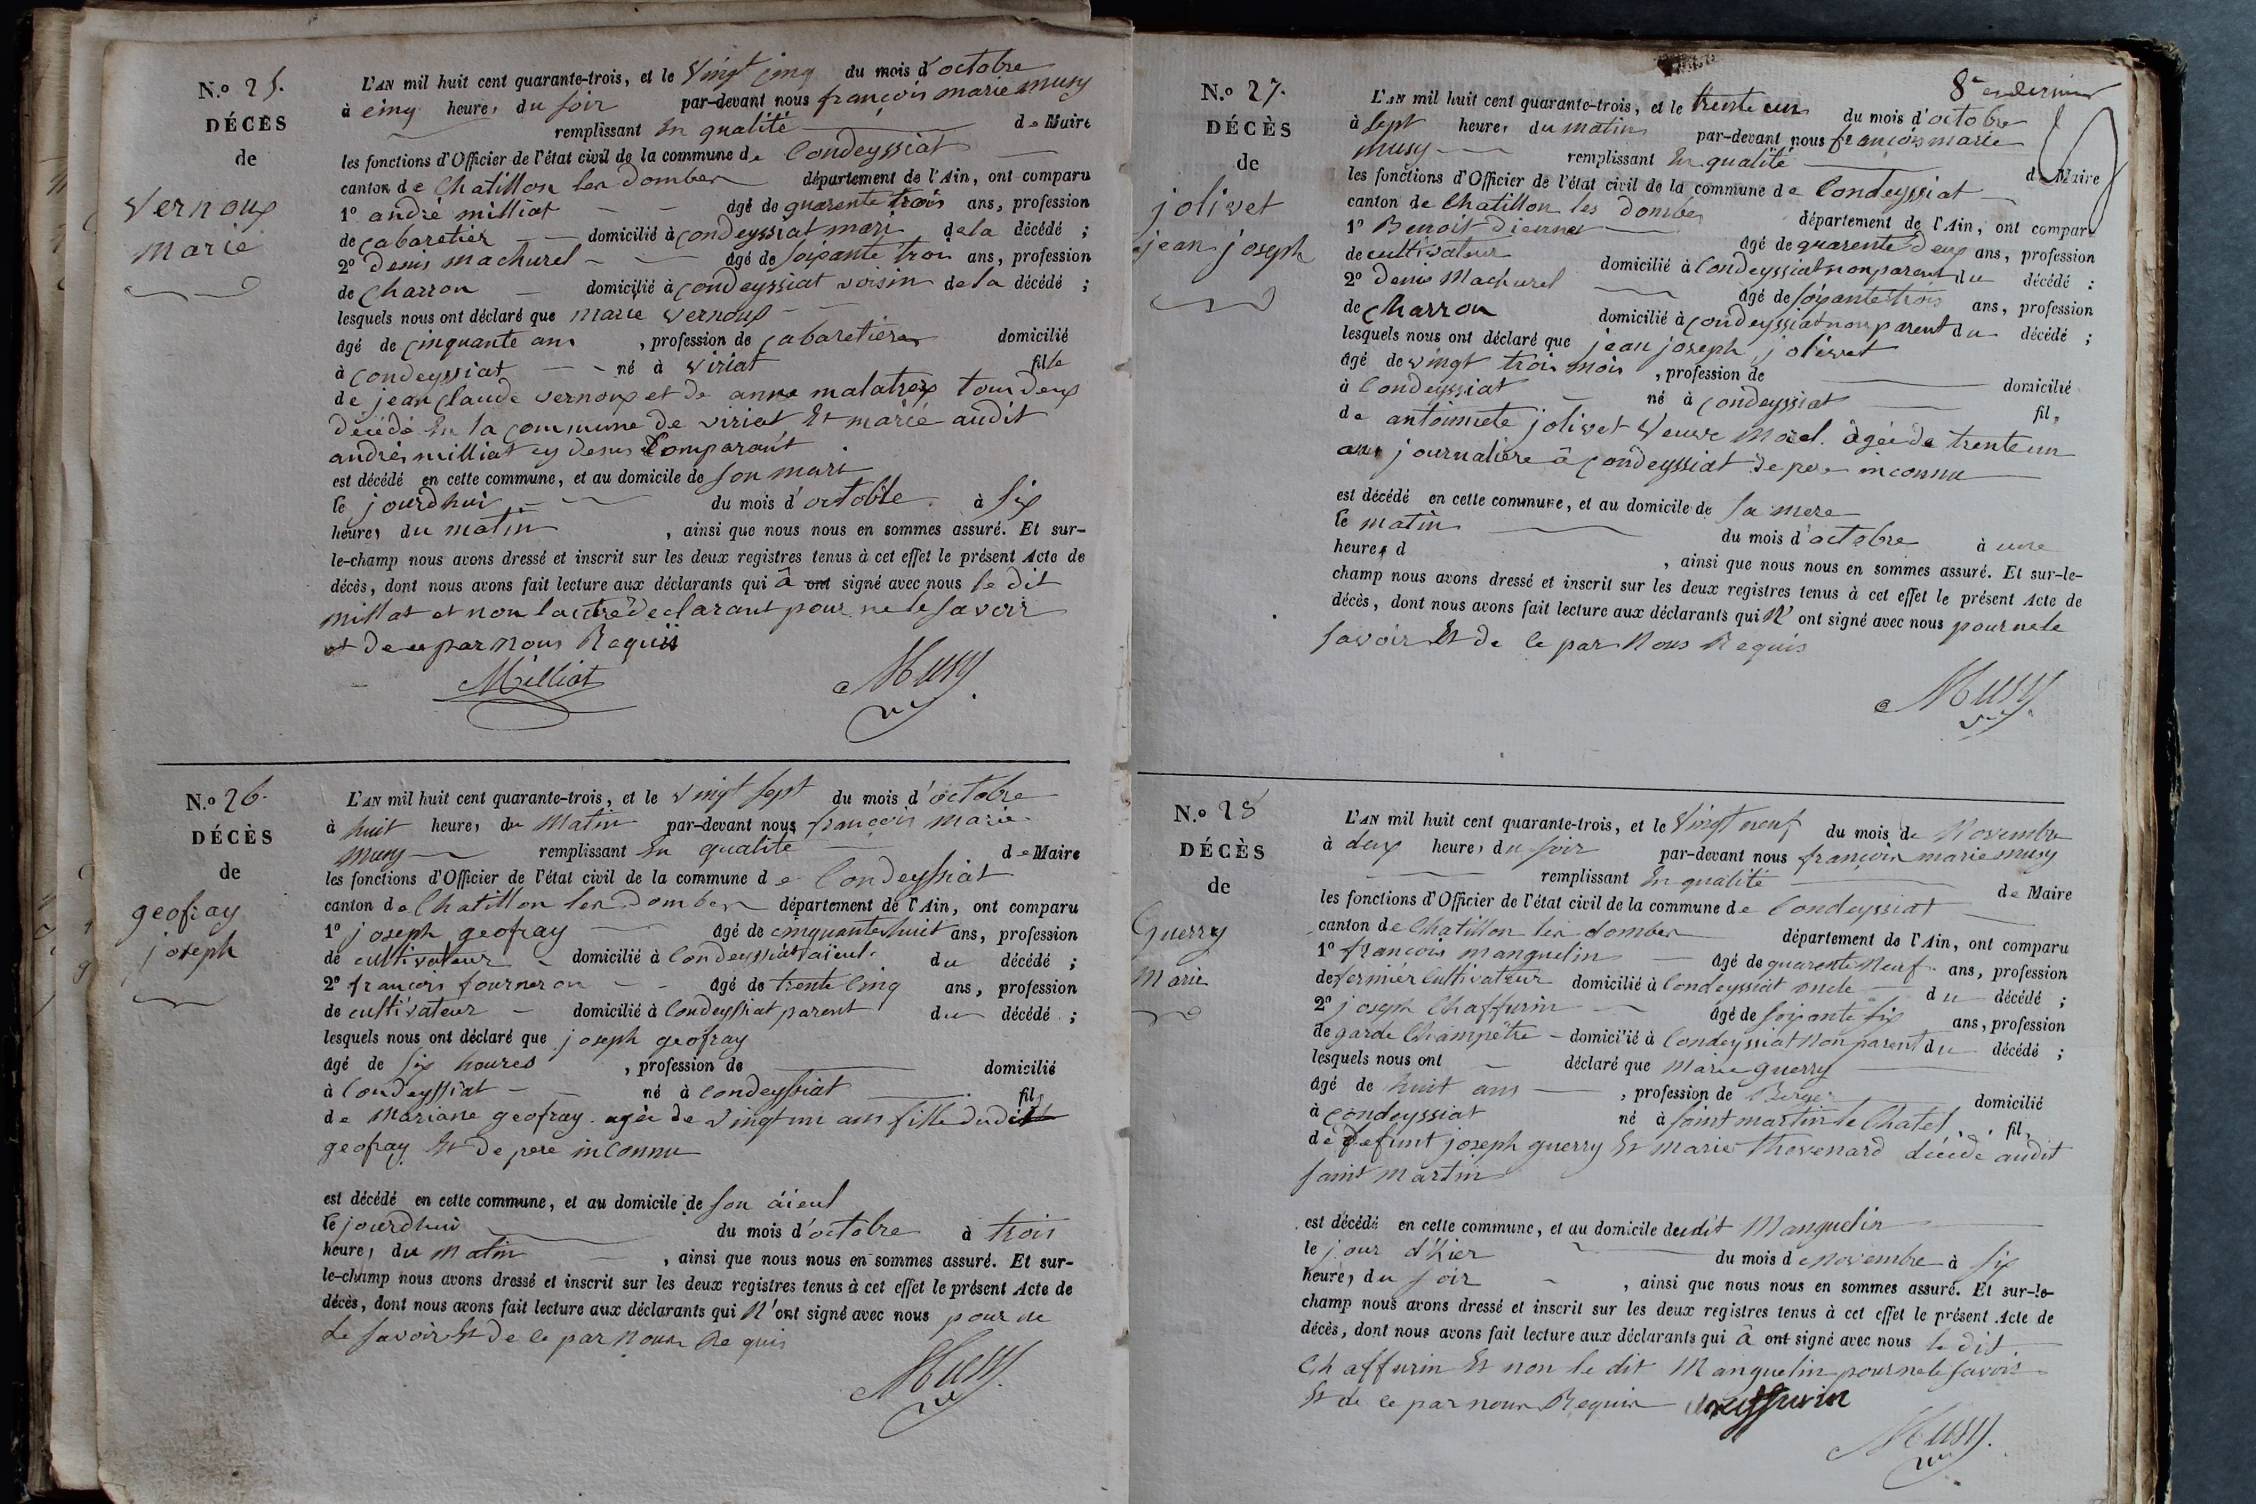 N.º 25.
DÉCÈS
de
Vernoux
Marie
L'AN mil huit cent quarante-trois, et le vingt cinq du mois d'octobre
à cinq heures du soir par-devant nous françois marie musy
remplissant en qualité de Maire
les fonctions d'Officier de l'état civil de la commune de Condeyssiat
canton de Chatillon les Dombes département de l'Ain, ont comparu
1º andré milliat âgé de quarente trois ans, profession
de cabaretier domicilié à condeyssiat mari de la décédé ;
2º denis machurel âgé de soixante trois ans, profession
de charron domicilié à condeyssiat voisin de la décédé ;
lesquels nous ont déclaré que marie vernoux
âgé de cinquante ans , profession de cabaretiere domicilié
à condeyssiat né à viriat fille
de jean claude vernoux et de anne malatrex tous deux
décédé en la commune de viriat Et marié audit
andré milliat cy desus Comparant
est décédé en cette commune, et au domicile de son mari
le jourdhui du mois d'octobre à six
heures du matin , ainsi que nous nous en sommes assuré. Et sur-
le-champ nous avons dressé et inscrit sur les deux registres tenus à cet effet le présent Acte de
décès, dont nous avons fait lecture aux déclarants qui â ont signé avec nous le dit
millat et non lautre declarant pour ne le savoir
et de ce par nous Requis
Milliat Musy
N.º 26.
DÉCÈS
de
geofray
joseph
L'AN mil huit cent quarante-trois, et le vingt sept du mois d'octobre
à huit heures du matin par-devant nous françois marie
musy remplissant en qualité de Maire
les fonctions d'Officier de l'état civil de la commune de Condeyssiat
canton de Chatillon les Dombes département de l'Ain, ont comparu
1º joseph geofray âgé de cinquante huit ans, profession
de cultivateur domicilié à Condeyssiat aïeul du décédé ;
2º françois fourneron âgé de trente cinq ans, profession
de cultivateur domicilié à Condeyssiat parent du décédé ;
lesquels nous ont déclaré que joseph geofray
âgé de six houres , profession de domicilié
à Condeyssiat né à condeyssiat fils
de Mariane geofray agée de vingt un ans fille dudit
geofray Et de pere inconnu
est décédé en cette commune, et au domicile de son aïeul
le jourdhui du mois d'octobre à trois
heures du matin , ainsi que nous nous en sommes assuré. Et sur-
le-champ nous avons dressé et inscrit sur les deux registres tenus à cet effet le présent Acte de
décès, dont nous avons fait lecture aux déclarants qui N'ont signé avec nous pour ne
Le savoir Et de ce par nous Requis
Musy
8e et dernier
N.º 27.
DÉCÈS
de
jolivet
jean joseph
L'AN mil huit cent quarante-trois, et le trente un du mois d'octobre
à sept heures du matin par-devant nous françois marie
musy remplissant en qualité de Maire
les fonctions d'Officier de l'état civil de la commune de Condeyssiat
canton de Chatillon les Dombes département de l'Ain, ont comparu
1º Benoit âgé de quarente deux ans, profession
de cultivateur domicilié à Condeyssiat non parent du décédé ;
2º Denis Machurel âgé de soixante trois ans, profession
de Charron domicilié à condeyssiat non parent du décédé ;
lesquels nous ont déclaré que jean joseph jolivet
âgé de vingt trois mois , profession de domicilié
à Condeyssiat né à condeyssiat fils
de antoinnete jolivet veuve Morel. âgée de trente un
ans journalière à condeyssiat de pere inconnu
est décédé en cette commune, et au domicile de sa mere
le matin du mois d'octobre à une
heures d , ainsi que nous nous en sommes assuré. Et sur-le-
champ nous avons dressé et inscrit sur les deux registres tenus à cet effet le présent Acte de
décès, dont nous avons fait lecture aux déclarants qui N'ont signé avec nous pour ne le
savoir Et de ce par Nous Requis
Musy
N.º 28
DÉCÈS
de
Guerry
Marie
L'AN mil huit cent quarante-trois, et le vingt neuf du mois de Novembre
à deux heures du soir par-devant nous françois marie musy
remplissant en qualité de Maire
les fonctions d'Officier de l'état civil de la commune de Condeyssiat
canton de Chatillon les dombes département de l'Ain, ont comparu
1º françois manguelin âgé de quarente Neuf ans, profession
de fermier Cultivateur domicilié à Condeyssiat oncle du décédé ;
2º joseph Chaffurin âgé de soixante six ans, profession
de garde Champêtre domicilié à Condeyssiat Non parent du décédé ;
lesquels nous ont déclaré que Marie guerry
âgé de huit ans , profession de Berger domicilié
à condeyssiat né à saint martin le Chatel fil
de defunt joseph guerry Et Marie Thevenard décédé audit
saint Martin
est décédé en cette commune, et au domicile dudit Manguelin
le jour d'hier du mois de novembre à six
heures du soir , ainsi que nous nous en sommes assuré. Et sur-le-
champ nous avons dressé et inscrit sur les deux registres tenus à cet effet le présent Acte de
décès, dont nous avons fait lecture aux déclarants qui â ont signé avec nous le dit
Chaffurin Et non le dit Manguelin pour ne le savoir
Et de ce par nous Requis Chaffurin
Musy